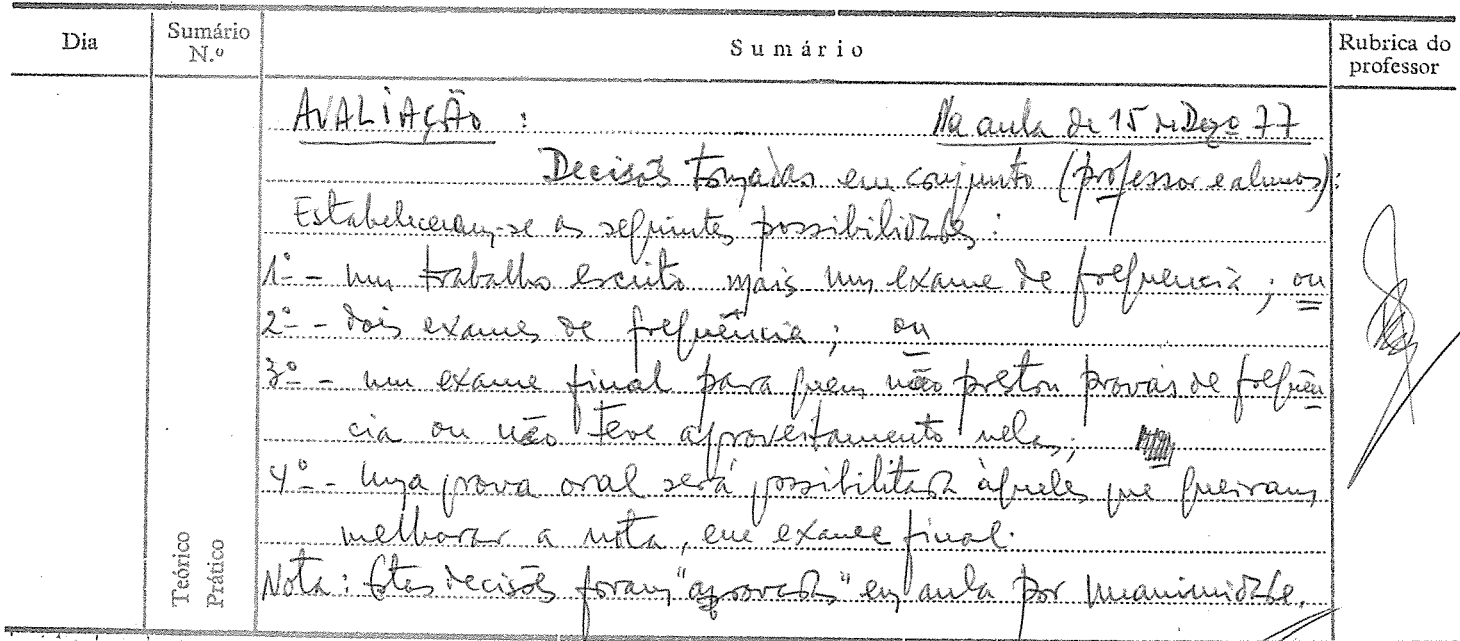 Dia
Sumário N.º
Sumário
Rubrica do professor
AVALIAÇÃO : Na aula de 15 de Dezº 77
Decisões tomadas em conjunto (professor e alunos):
Estabeleceram-se as seguintes possibilidades :
1º - um trabalho escrito mais um exame de frequência ; ou
2º - dois exames de frequência ; ou
3º - um exame final para quem não prestou provas de frequên
cia ou não teve aproveitamento nelas ;
4º - Uma prova oral será possibilitada àqueles que queiram
melhorar a nota, em exame final.
Nota : Estas decisões foram "aprovadas" em aula por unanimidade.
Teórico
Prático